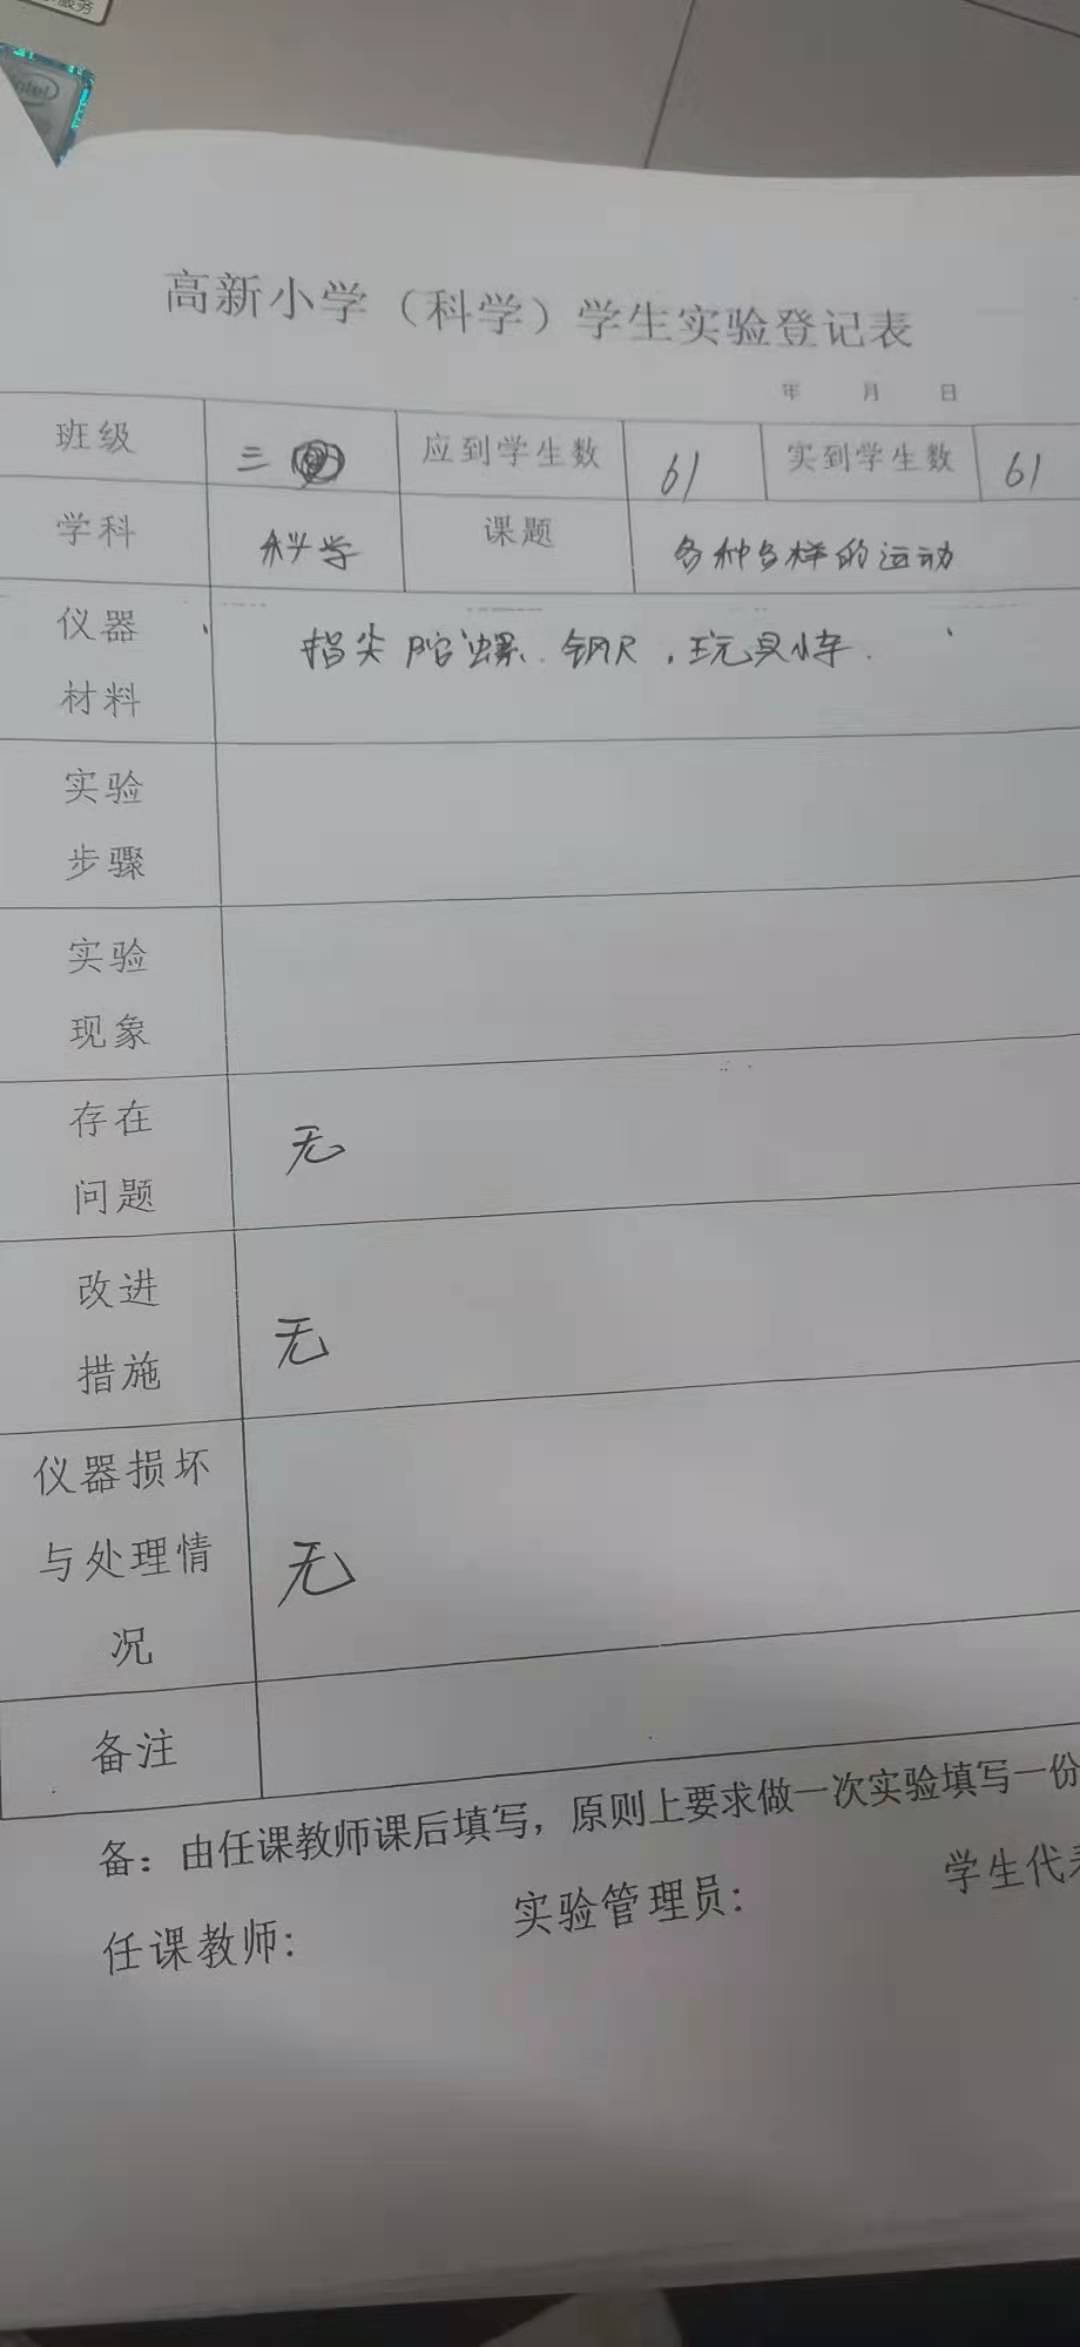 服务
intel
高新小学（科学）学生实验登记表
年 月 日
班级 三 应到学生数 61 实到学生数 61
学科 科学 课题 各种各样的运动
仪器
材料
指尖陀螺. 钢尺，玩具小车.
实验
步骤
实验
现象
存在
问题
无
改进
措施
无
仪器损坏
与处理情
况
无
备注
备：由任课教师课后填写，原则上要求做一次实验填写一份
任课教师: 实验管理员: 学生代表